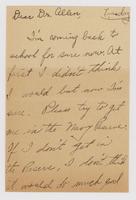 Dear Dr. Allen
Tuesday
I'm coming back to
school for sure now. At
first I didn't think
I would but now I'm
sure. Pleas try to get
me in the Navy Reserve.
If I don't get in
the Reserve, I don't think
it would do much good